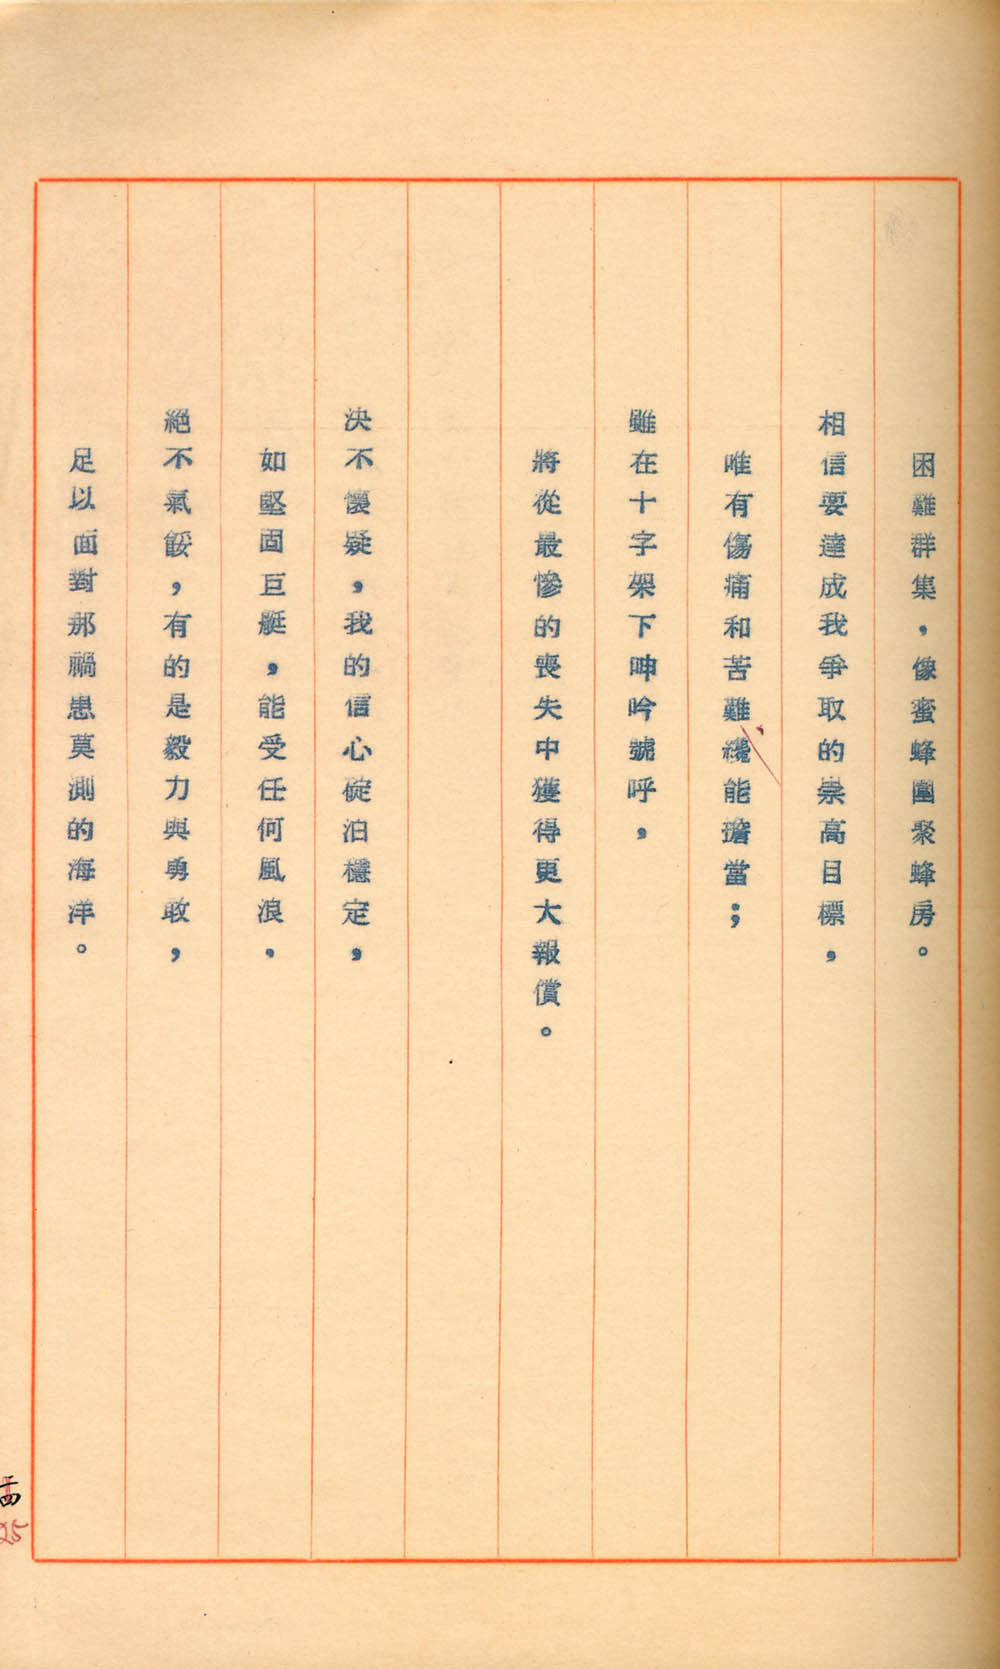 困難群集，像蜜蜂團聚蜂房。
相信要達成我爭取的崇高目標，
唯有傷痛和苦難纔能擔當；
雖在十字架下呻吟號呼，
將從最慘的喪失中獲得更大報償。
決不懷疑，我的信心碇泊穩定，
如堅固巨艇，能受任何風浪，
絕不氣餒，有的是毅力與勇敢，
足以面對那禍患莫測的海洋。
25